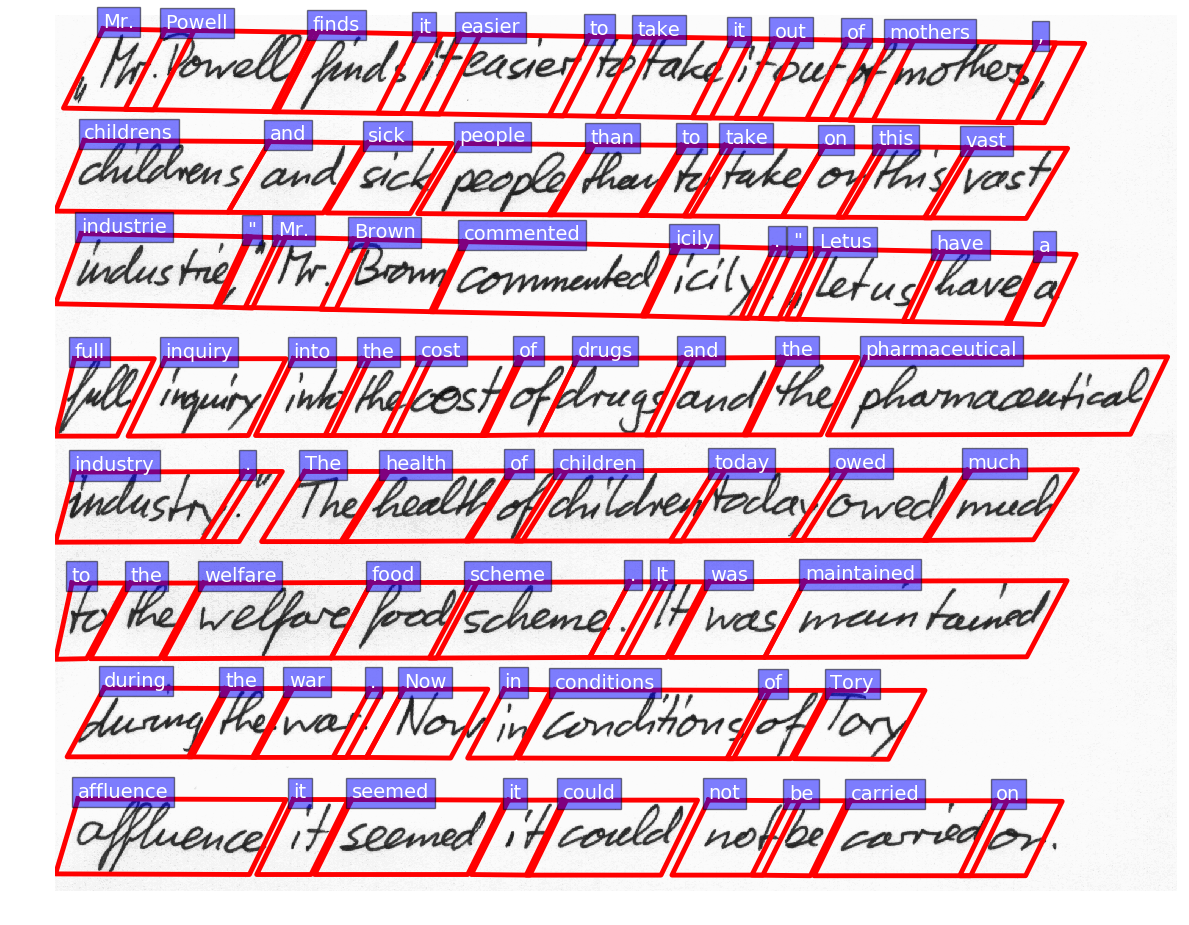 Mr. Powell finds it easier to take it out of mothers ,
„Mr. Powell finds it easier to take it out of mothers,
childrens and sick people than to take on this vast
childrens and sick people than to take on this vast
industrie " Mr. Brown commented icily . " Letus have a
industrie," Mr. Brown commented icily. „Let us have a
full inquiry into the cost of drugs and the pharmaceutical
full inquiry into the cost of drugs and the pharmaceutical
industry . The health of children today owed much
industry." The health of children today owed much
to the welfare food scheme . It was maintained
to the welfare food scheme. It was maintained
during the war . Now in conditions of Tory
during the war. Now in conditions of Tory
affluence it seemed it could not be carried on
affluence it seemed it could not be carried on.